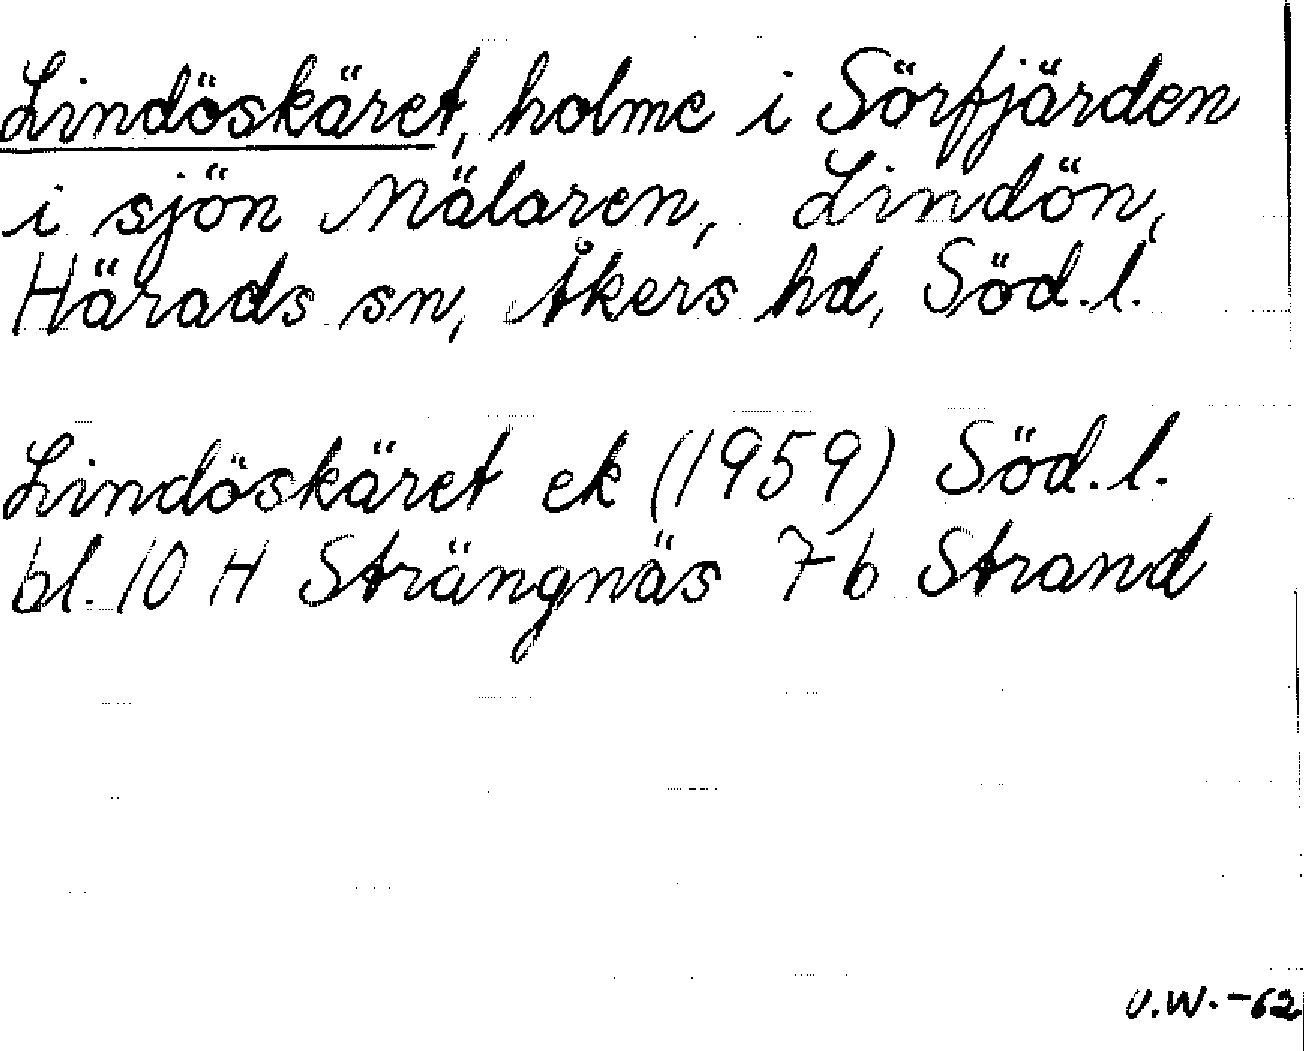 Lindöskäret, holme i Sörfjärden
i sjön Mälaren, Lindön,
Härads sn, Åkers hd, Söd.l.
Lindöskäret ek (1959) Söd.l.
bl. 10 H Strängnäs 7b Strand
U.W.-62